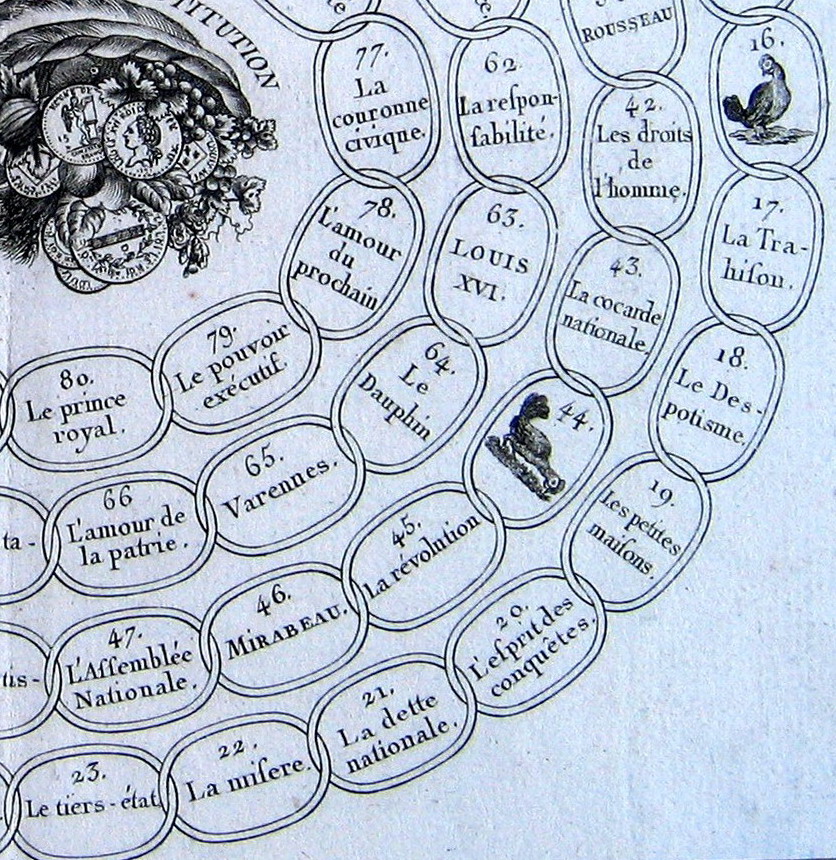 TITUTION
ROUSSEAU
16.
17.
La Tra-
hiſon.
18.
Le Des-
potisme.
19.
Les petites
maiſons.
20.
L'eſprit des
conquêtes.
21.
La dette
nationale.
22.
La miſere.
23.
Le tiers-état
42.
Les droits
de
l'homme.
43.
La cocarde
nationale.
44.
45.
La révolution
46.
MIRABEAU.
47.
L'Aſſemblée
Nationale.
tis-
62
La reſpon-
ſabilité.
63.
LOUIS
XVI.
64.
Le
Dauphin
65.
Varennes.
66
L'amour de
la patrie.
ta-
77.
La
couronne
civique.
78.
L'amour
du
prochain
79.
Le pouvoir
exécutif.
80.
Le prince
royal.